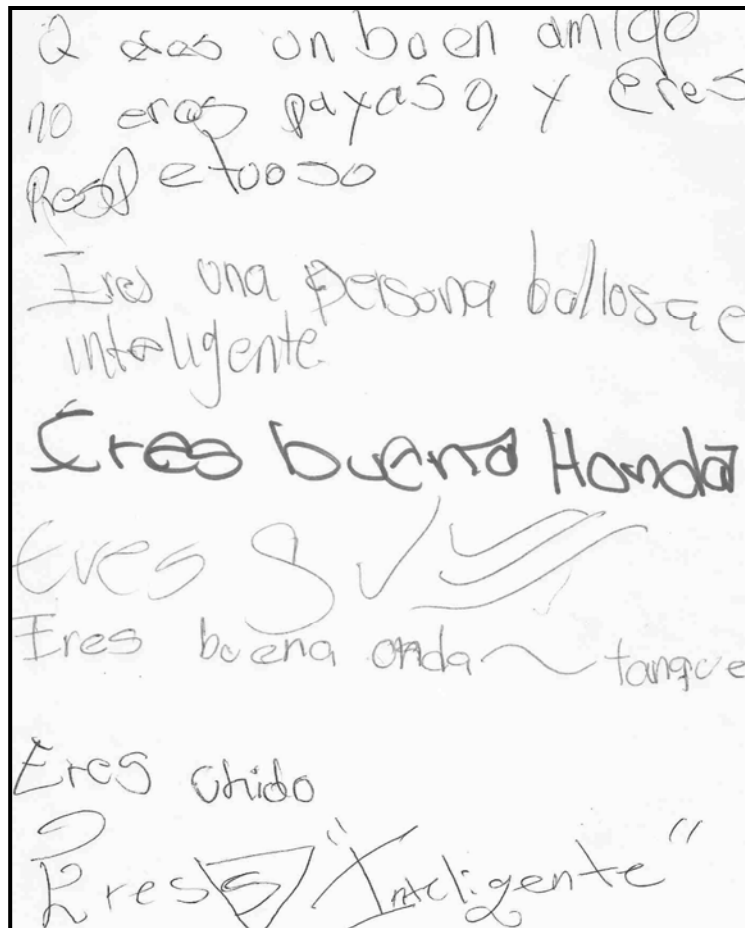 Q eras un buen amigo
no eras payaso, y Eres
Respetuoso
Eres una persona ballosa e
inteligente
Eres buena Honda
Eres
Eres buena onda ~ tanque
Eres chido
Eres "Inteligente"